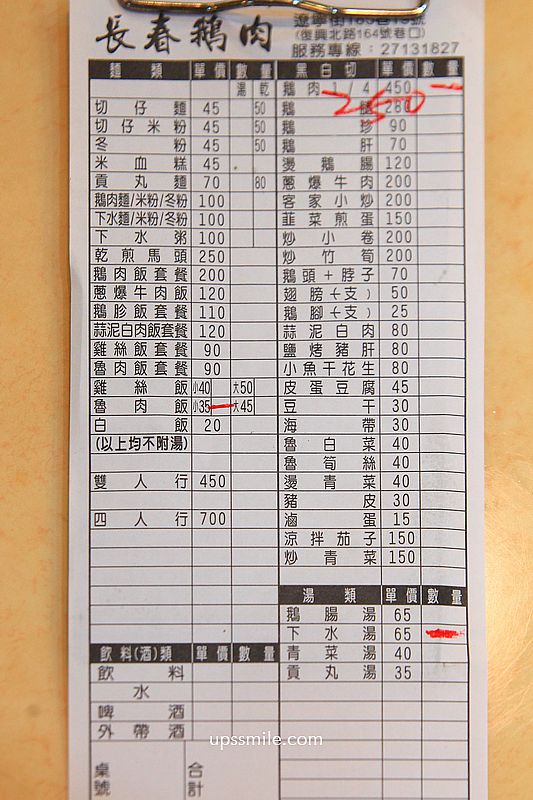 長春鵝肉
遼寧街165巷19號
(復興北路164號巷口)
服務專線：27131827
麵類 單價 數量
湯 乾
切仔麵 45 50
切仔米粉 45 50
冬粉 45 50
米血糕 45
貢丸麵 70 80
鵝肉麵/米粉/冬粉 100
下水麵/米粉/冬粉 100
下水粥 100
乾煎馬頭 250
鵝肉飯套餐 200
蔥爆牛肉飯 120
鵝胗飯套餐 110
蒜泥白肉飯套餐 120
雞絲飯套餐 90
魯肉飯套餐 90
雞絲飯 小40 大50
魯肉飯 小35 大45
白飯 20
(以上均不附湯)
雙人行 450
四人行 700
飲料(酒)類 單價 數量
飲料
水
啤酒
外帶酒
桌號
合計
黑白切 單價 數量
鵝肉1/4 450
鵝腿 280
250
鵝珍 90
鵝肝 70
燙鵝腸 120
蔥爆牛肉 200
客家小炒 200
韮菜煎蛋 150
炒小卷 200
炒竹筍 200
鵝頭+脖子 70
翅膀(支) 50
鵝腳(支) 25
蒜泥白肉 80
鹽烤豬肝 80
小魚干花生 80
皮蛋豆腐 45
豆干 30
海帶 30
魯白菜 40
魯筍絲 40
燙青菜 40
豬皮 30
滷蛋 15
涼拌茄子 150
炒青菜 150
湯類 單價 數量
鵝腸湯 65
下水湯 65
青菜湯 40
貢丸湯 35
upssmile.com